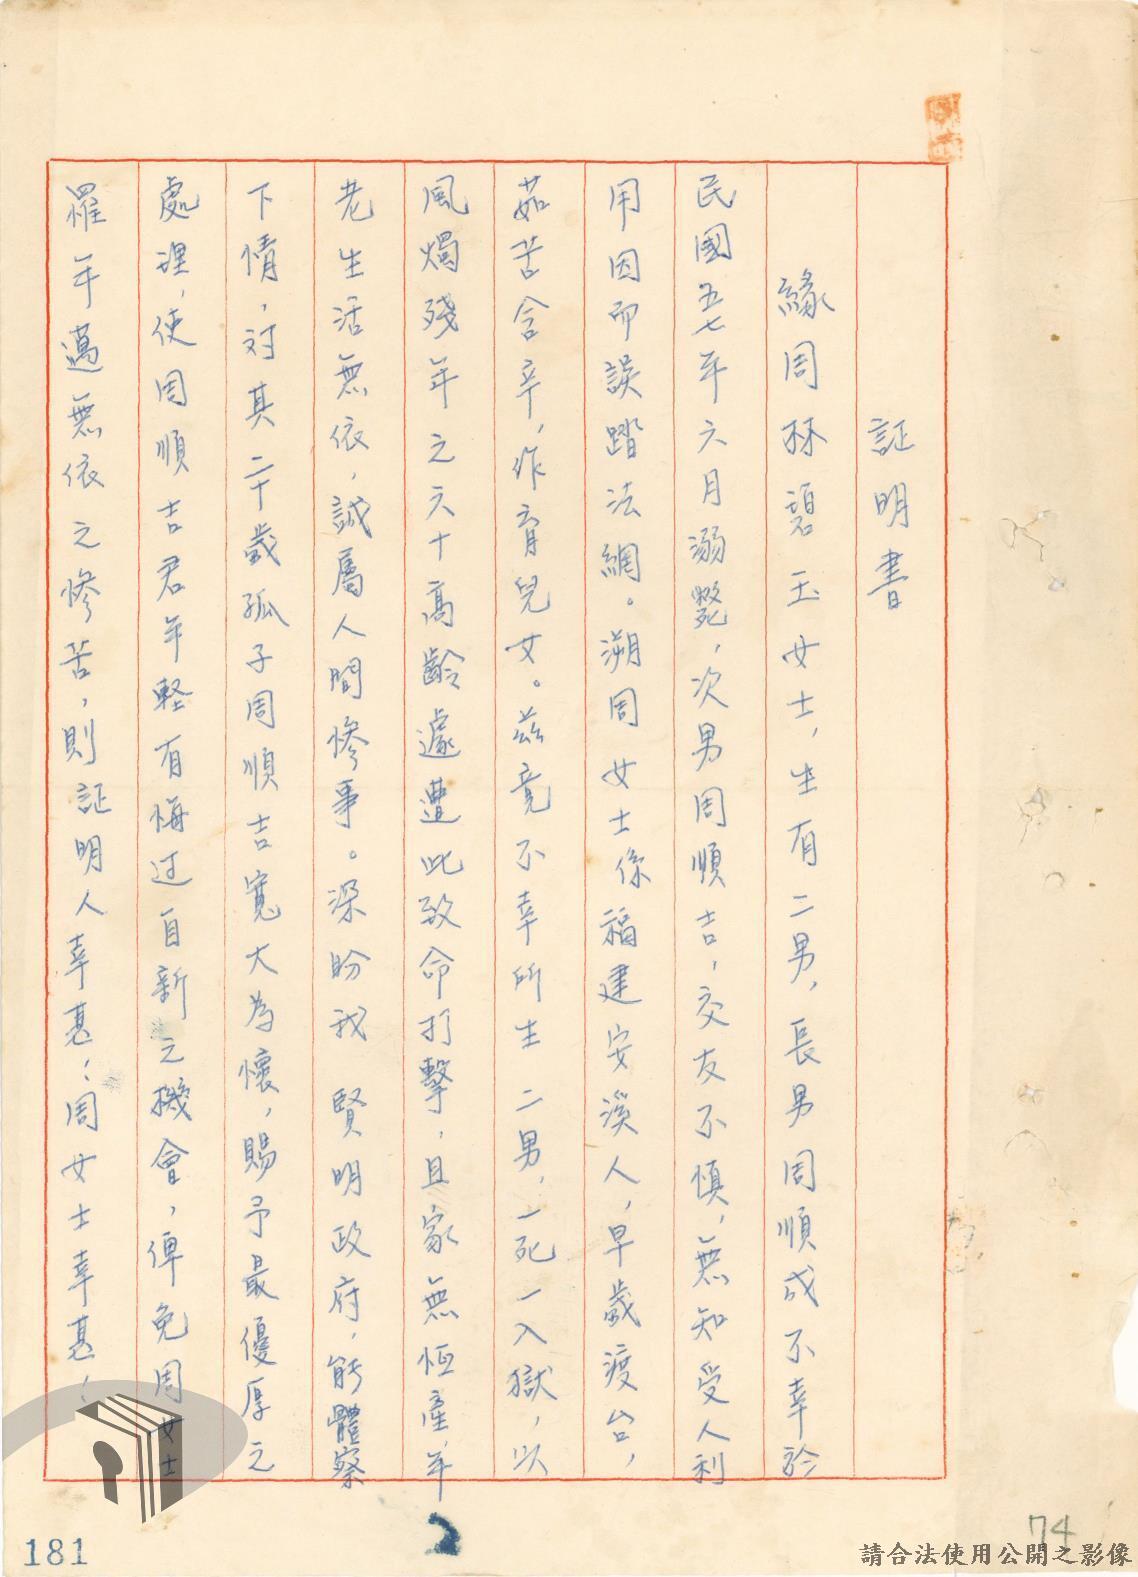 証明書
緣周林碧玉女士，生有二男，長男周順成不幸於
民國五七年六月溺斃，次男周順吉，交友不慎，無知受人利
用因而誤踏法網。溯周女士係福建安溪人，早歲渡台，
茹苦含辛，作育兒女。茲竟不幸所生二男，一死一入獄，以
風燭殘年之六十高齡遽遭此致命打擊，且家無恒產，年
老生活無依，誠屬人間慘事。深盼我 賢明政府，能體察
下情，对其二十歲孤子周順吉寬大為懷，賜予最優厚之
處理，使周順吉君年輕有悔过自新之機會，俾免周女士
罹年邁無依之慘苦，則証明人幸甚！周女士幸甚！
2
181
74
請合法使用公開之影像